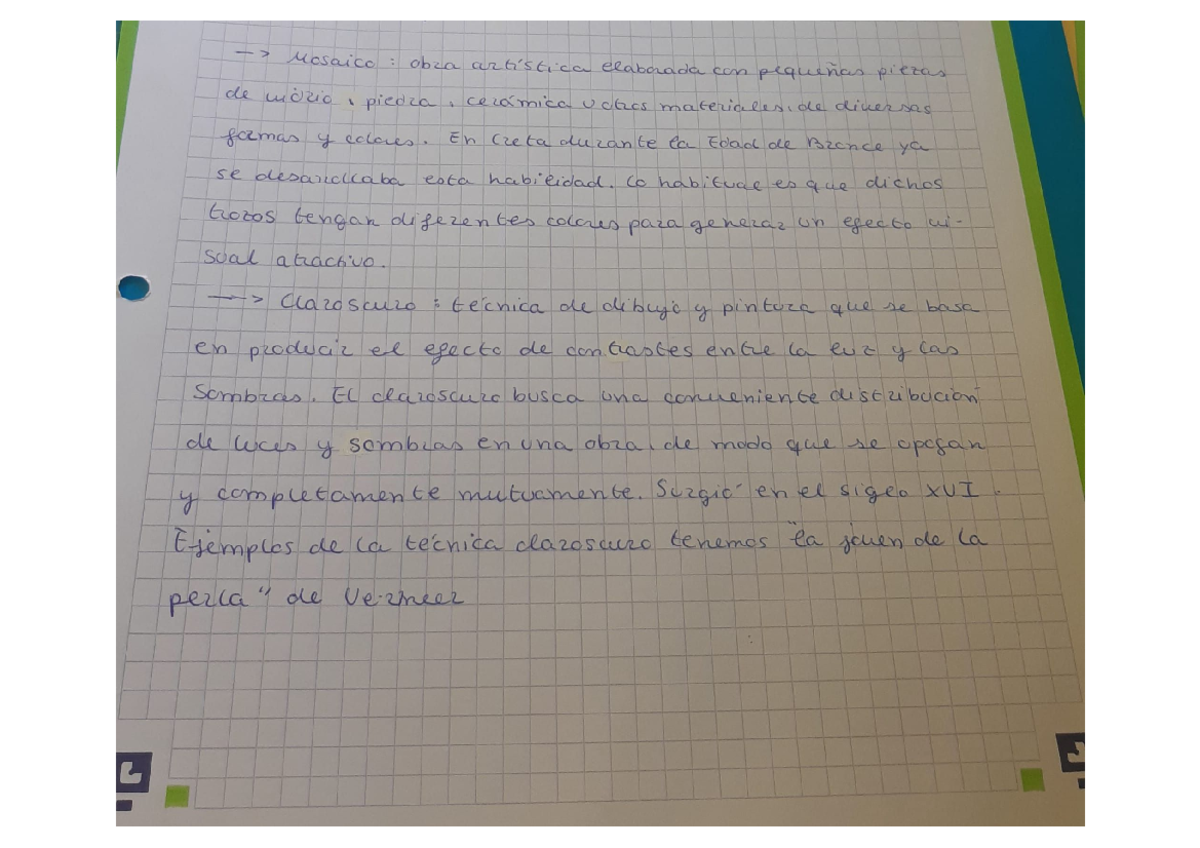 —> Mosaico : obra artística elaborada con pequeñas piezas
de mármol, piedra, cerámica u otros materiales, de diversas
formas y colores. En Creta durante la Edad de Bronce ya
se desarrollaba esta habilidad. Lo habitual es que dichos
trozos tengan diferentes colores para generar un efecto vi-
sual atractivo.
—> Claroscuro : técnica de dibujo y pintura que se basa
en producir el efecto de contrastes entre la luz y las
sombras. El claroscuro busca una conveniente distribución
de luces y sombras en una obra, de modo que se opogan
y completamente mutuamente. Surgió en el siglo XVI.
Ejemplos de la técnica claroscuro tenemos "la joven de la
perla" de Vermeer